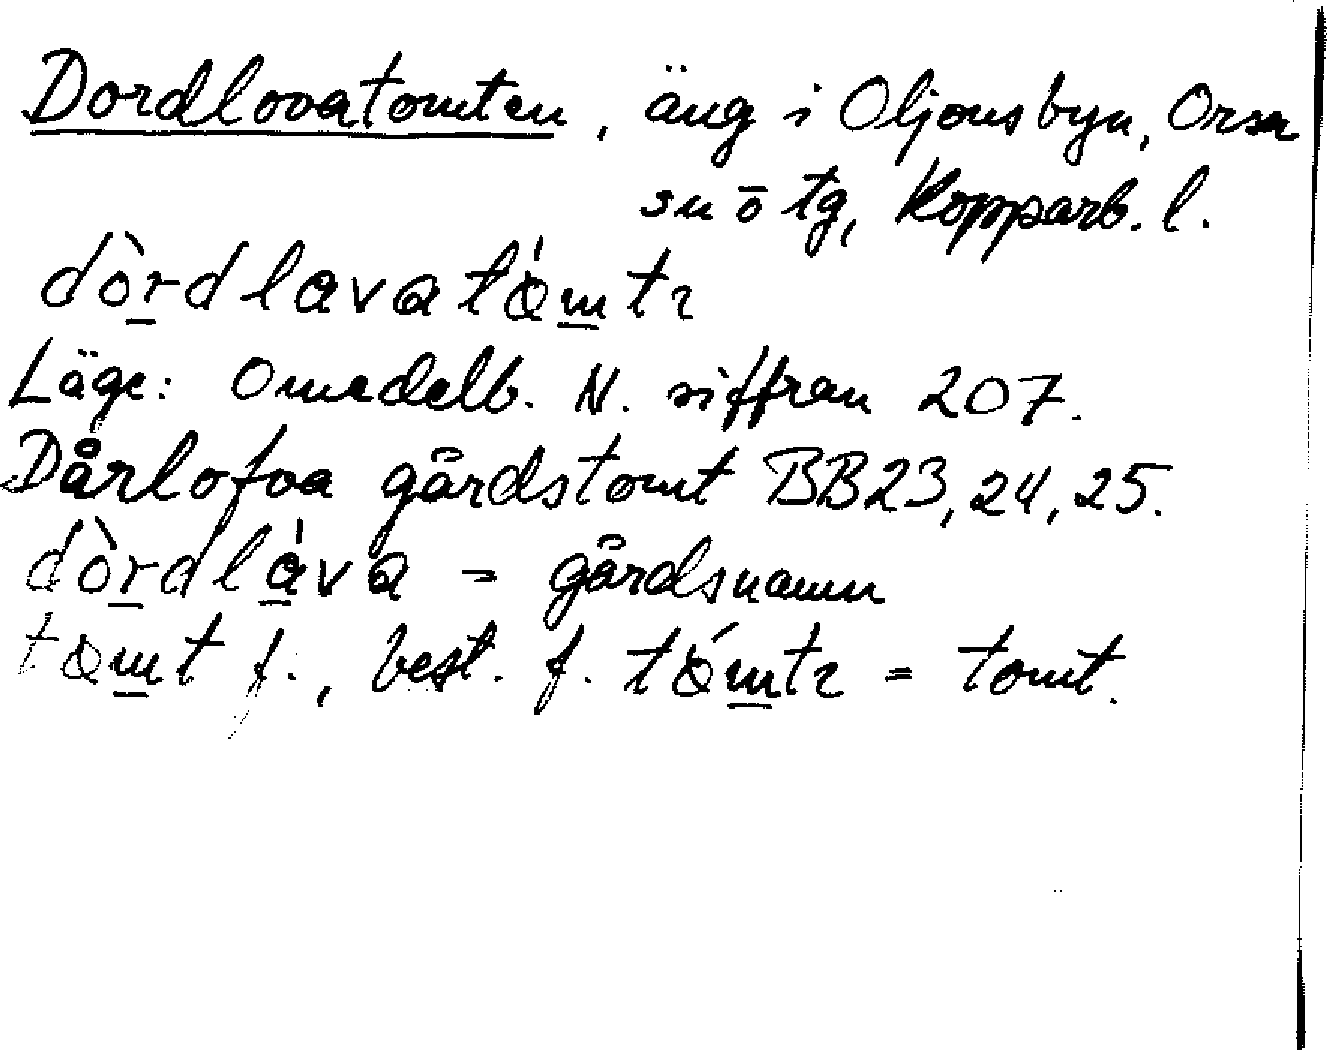 Dordlovatomten, äng i Oljonsbyn, Orsa
sn o tg, Kopparb. l.
dòrdlavatómtr
Läge: Omedelb. N. siffran 207.
Dårlofva gårdstomt BB23, 24, 25.
dòrdlàva = gårdsnamn
tomt f., best. f. tómtr = tomt.